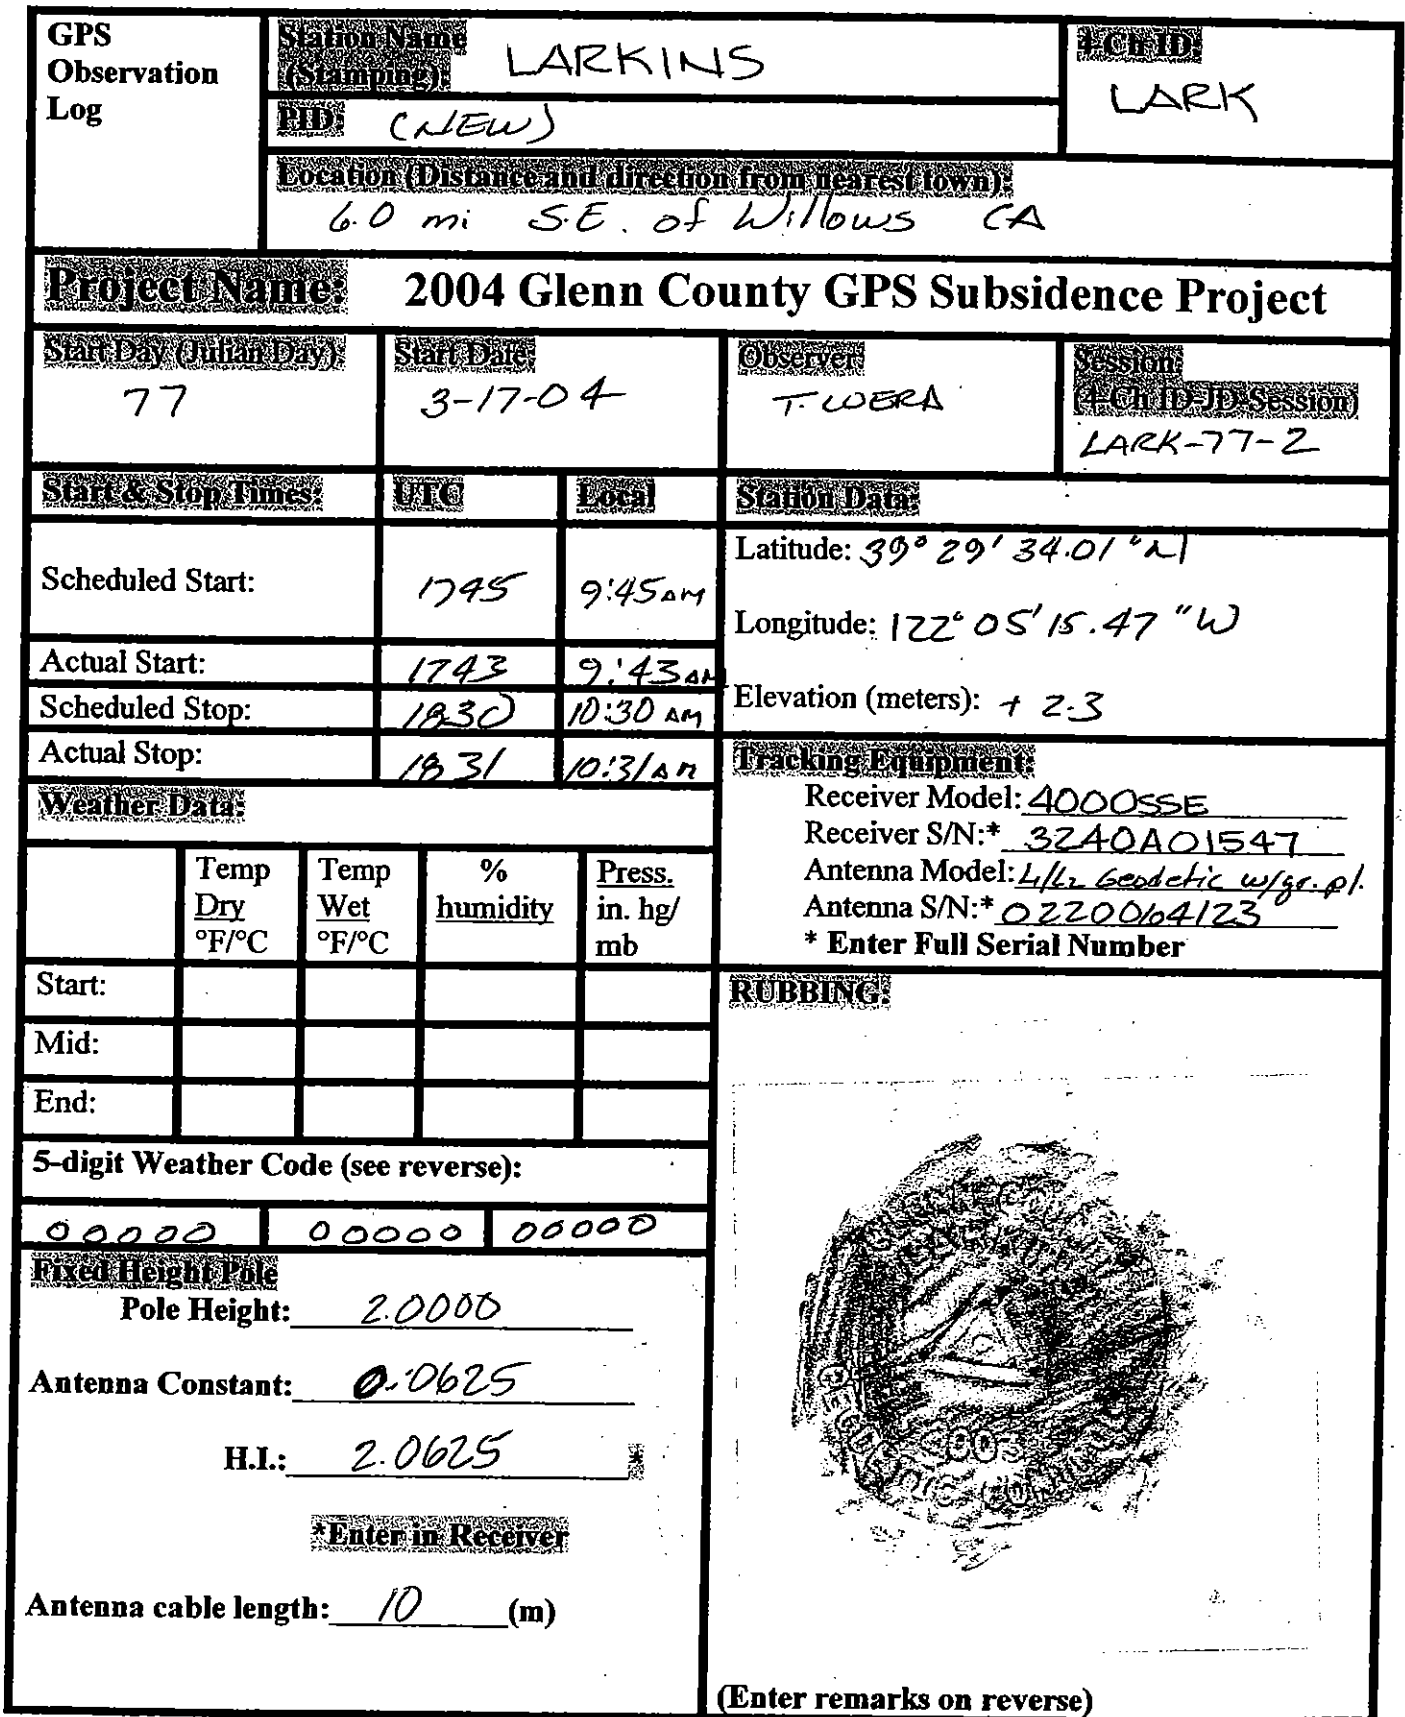 GPS
Observation
Log
Station Name
(Stamping): LARKINS
4-Ch ID:
LARK
PID: (NEW)
Location (Distance and direction from nearest town):
6.0 mi S.E. of Willows CA
Project Name: 2004 Glenn County GPS Subsidence Project
Start Day (Julian Day):
77
Start Date:
3-17-04
Observer:
T. WERA
Session:
(4-Ch ID-JD-Session)
LARK-77-2
Start & Stop Times: UTC Local
Scheduled Start: 1745 9:45AM
Actual Start: 1743 9:43AM
Scheduled Stop: 1830 10:30 AM
Actual Stop: 1831 10:31AM
Station Data:
Latitude: 39° 29' 34.01" N
Longitude: 122° 05' 15.47 "W
Elevation (meters): + 2.3
Tracking Equipment:
Receiver Model: 4000SSE
Receiver S/N:* 3240A01547
Antenna Model: L1/L2 Geodetic w/gr. pl.
Antenna S/N:* 0220064123
* Enter Full Serial Number
Weather Data:
Temp
Dry
°F/°C
Temp
Wet
°F/°C
%
humidity
Press.
in. hg/
mb
Start:
Mid:
End:
5-digit Weather Code (see reverse):
00000 00000 00000
Fixed Height Pole
Pole Height: 2.0000
Antenna Constant: 0.0625
H.I.: 2.0625 *
*Enter in Receiver
Antenna cable length: 10 (m)
RUBBING:
(Enter remarks on reverse)